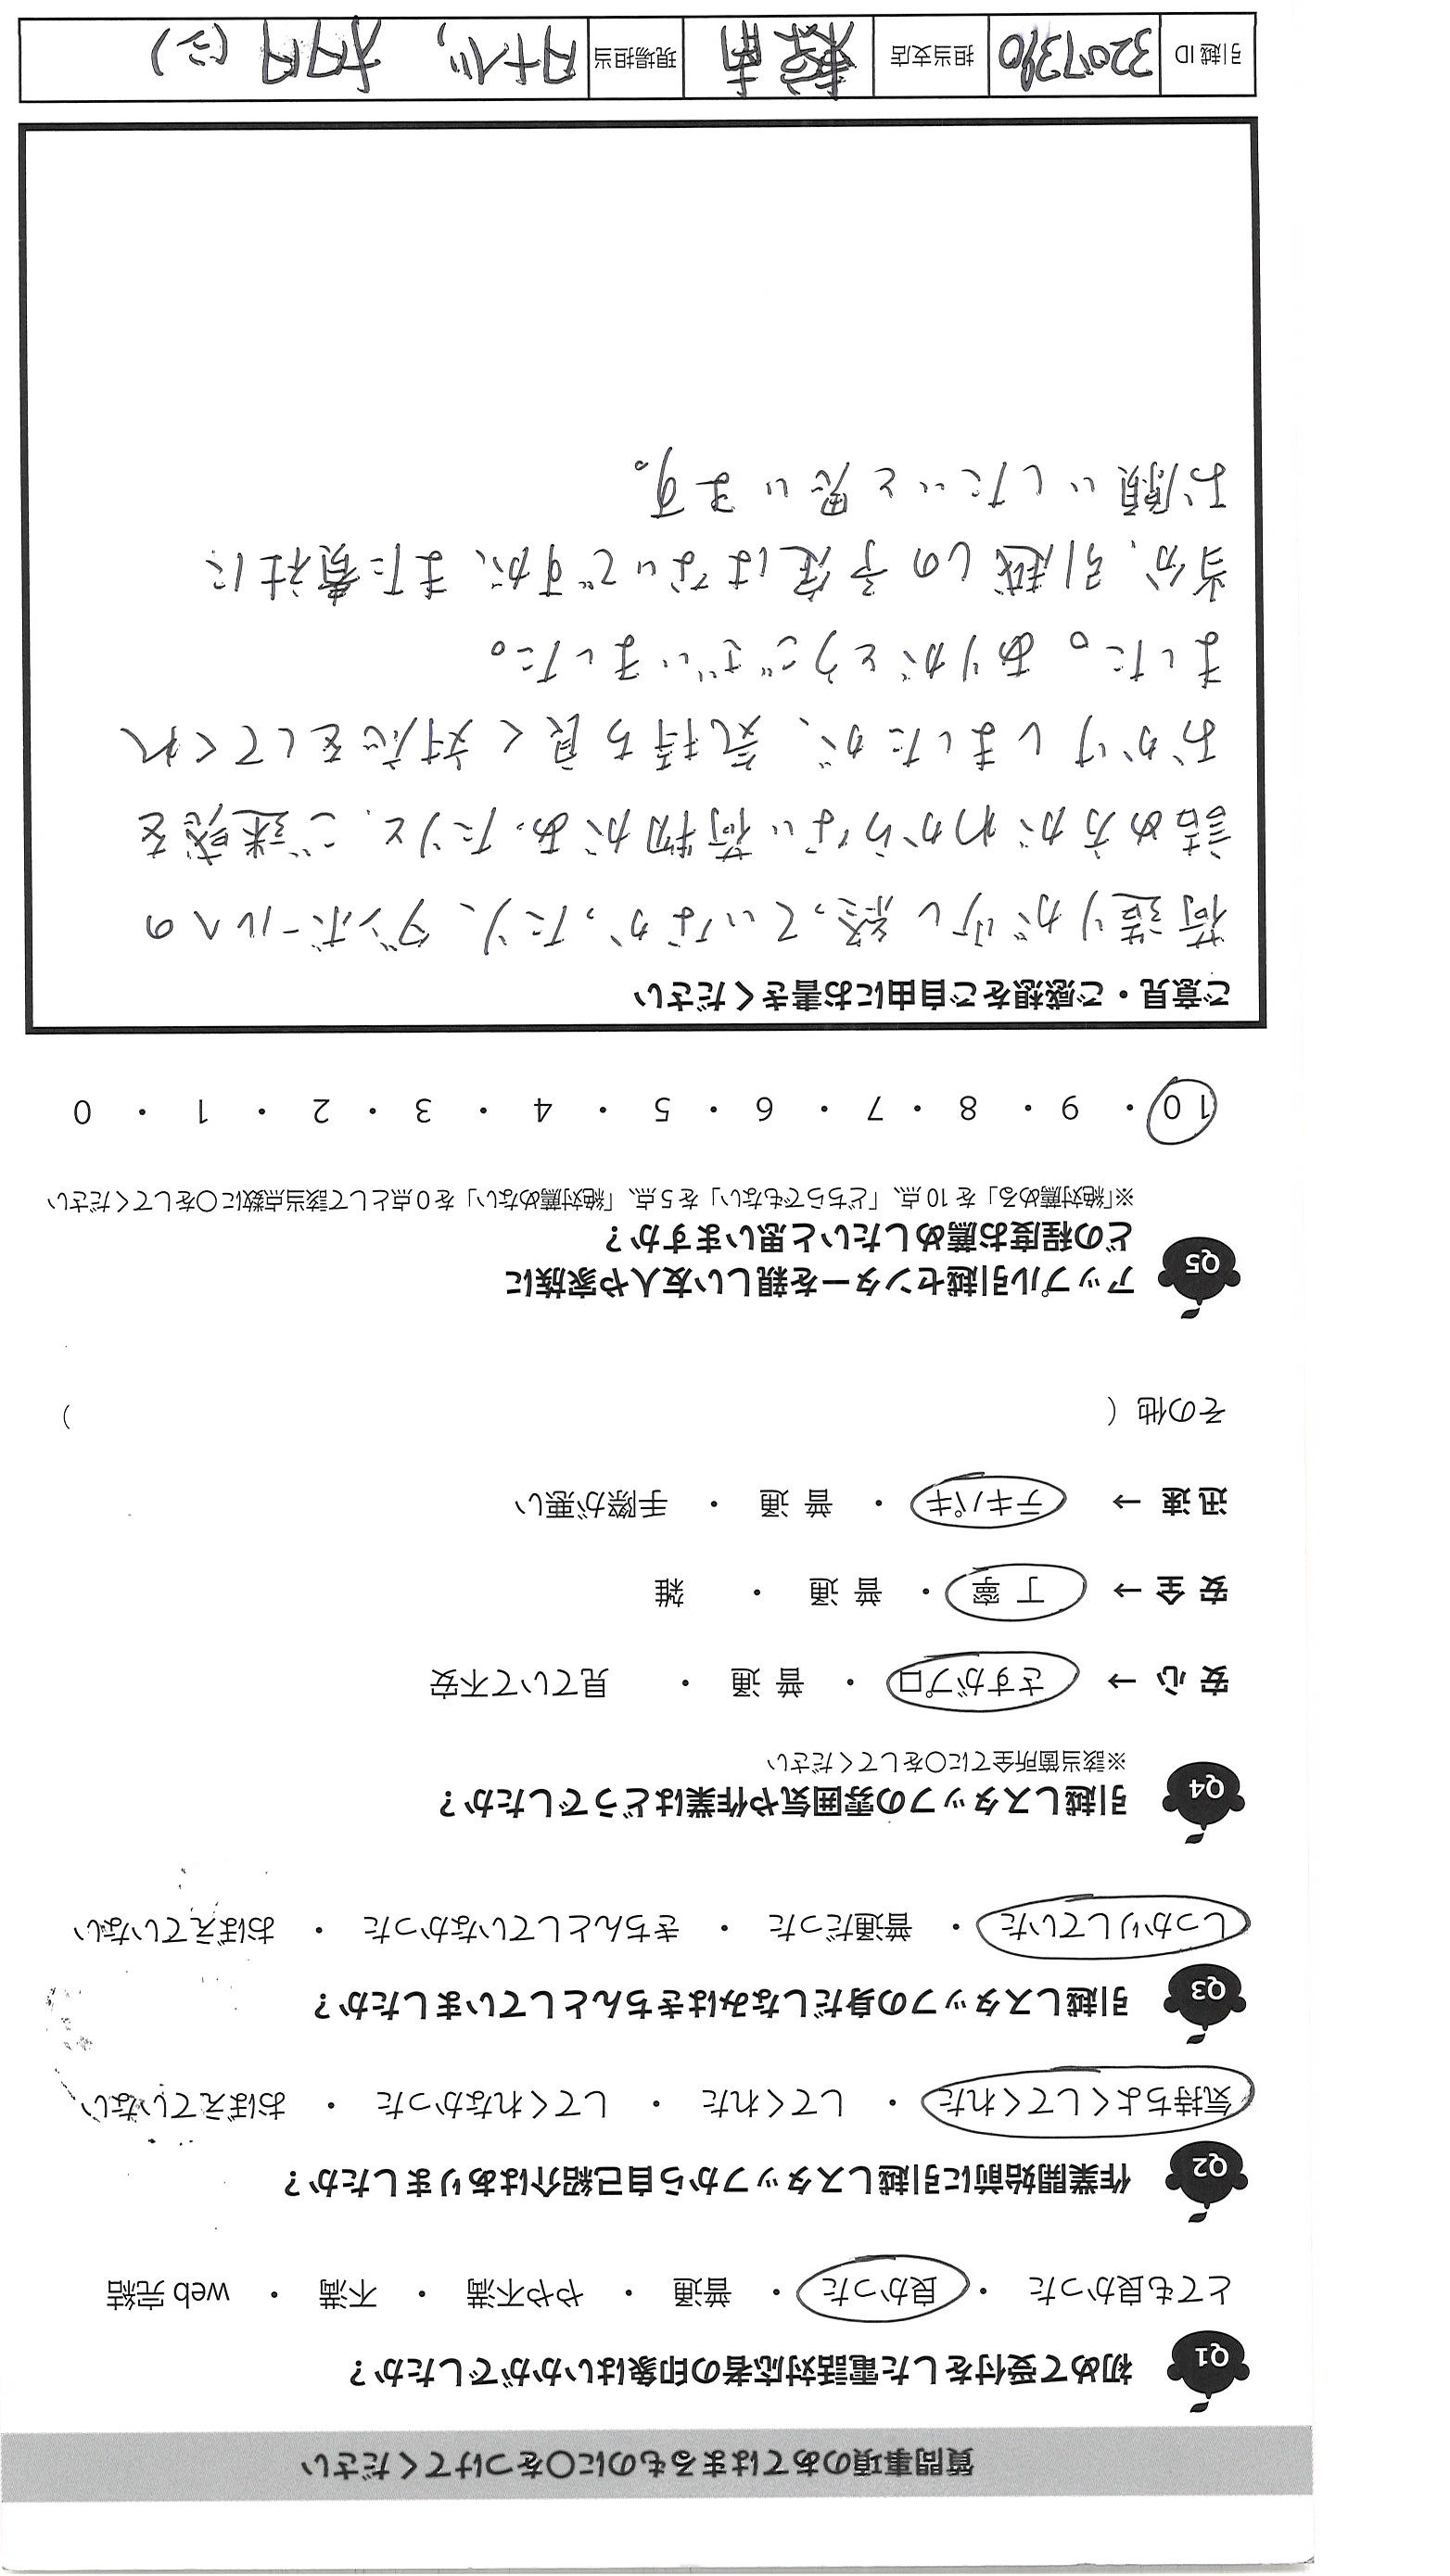 質問事項のあてはまるものに○をつけてください
Q1 初めて受付をした電話対応者の印象はいかがでしたか？
とても良かった ・ 良かった ・ 普通 ・ やや不満 ・ 不満 ・ web 完結
Q2 作業開始前に引越しスタッフから自己紹介はありましたか？
気持ちよくしてくれた ・ してくれた ・ してくれなかった ・ おぼえていない
Q3 引越しスタッフの身だしなみはきちんとしていましたか？
しっかりしていた ・ 普通だった ・ きちんとしていなかった ・ おぼえていない
Q4 引越しスタッフの雰囲気や作業はどうでしたか？
※該当箇所全てに○をしてください
安 心 → さすがプロ ・ 普 通 ・ 見ていて不安
安 全 → 丁 寧 ・ 普 通 ・ 雑
迅 速 → テキパキ ・ 普 通 ・ 手際が悪い
その他（ ）
Q5 アップル引越センターを親しい友人や家族に
どの程度お薦めしたいと思いますか？
※「絶対薦める」を 10 点、「どちらでもない」を 5 点、「絶対薦めない」を 0 点として該当点数に○をしてください
10 ・ 9 ・ 8 ・ 7 ・ 6 ・ 5 ・ 4 ・ 3 ・ 2 ・ 1 ・ 0
ご意見・ご感想をご自由にお書きください
荷造りが少し終っていなかったり、ダンボールへの
詰め方がわからない荷物があったりと、ご迷惑を
おかけしましたが、気持ち良く対応をしてくれ
ました。ありがとうございました。
当分、引越しの予定はないですが、また貴社に
お願いしたいと思います。
引越 ID 3207390 担当支店 現場担当